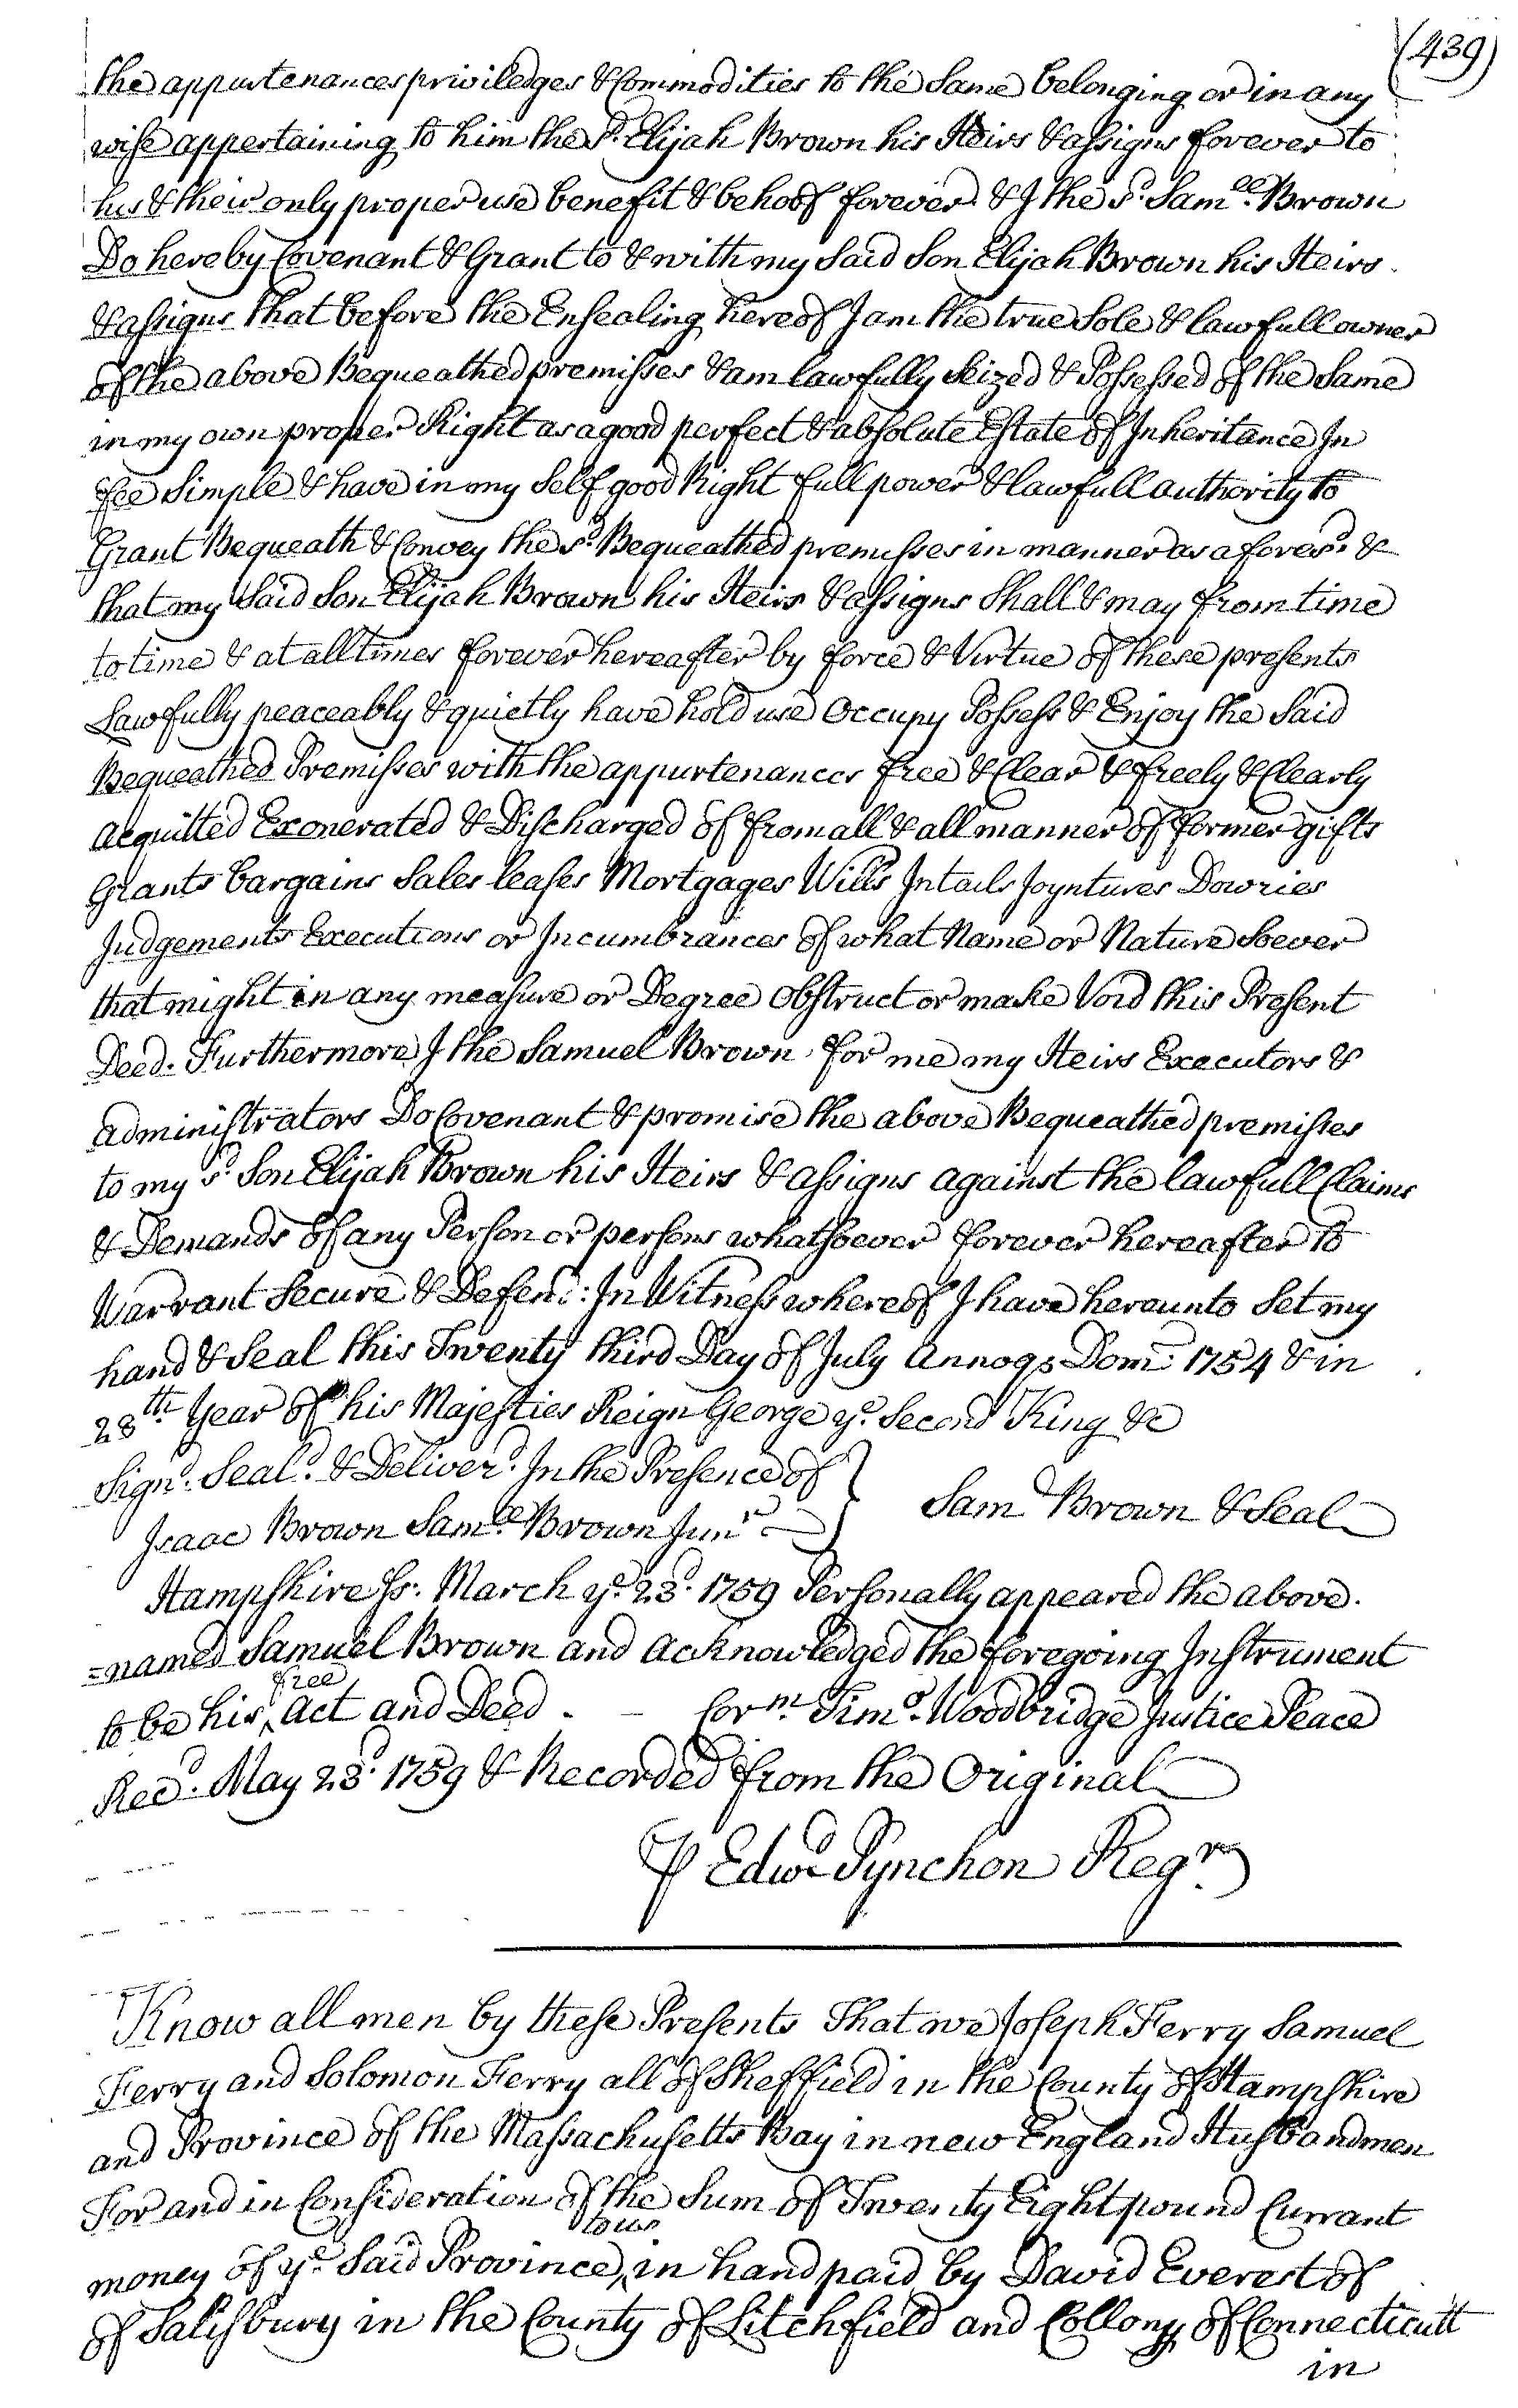 (439)
the appurtenances priviledges & Commodities to the Same belonging or in any
wise appertaining to him the sd. Elijah Brown his Heirs & assigns forever to
his & their only proper use benefit & behoof forever. & I the sd. Samll. Brown
Do hereby Covenant & Grant to & with my Said Son Elijah Brown his Heirs
& assigns that before the Ensealing hereof I am the true Sole & lawfull owner
of the above Bequeathed premisses & am lawfully Seized & Possessed of the Same
in my own proper Right as a good perfect & absolute Estate of Inheritance In
fee Simple & have in my Self good Right full power & lawfull authority to
Grant Bequeath & Convey the sd. Bequeathed premisses in manner as aforesd. &
that my Said Son Elijah Brown his Heirs & assigns Shall & may from time
to time & at all times forever hereafter by force & Virtue of these presents
Lawfully peaceably & quietly have hold use Occupy Possess & Enjoy the Said
Bequeathed Premisses with the appurtenances free & Clear & freely & Clearly
acquitted Exonerated & Discharged of from all & all manner of former gifts
Grants bargains Sales leases Mortgages Wills Intails Joyntures Dowries
Judgements Executions or Incumbrances of what Name or Nature Soever
that might in any measure or Degree Obstruct or make Void this Present
Deed. Furthermore I the Samuel Brown for me my Heirs Executors &
administrators Do Covenant & promise the above Bequeathed premisses
to my sd. Son Elijah Brown his Heirs & assigns against the lawfull Claims
& Demands of any Person or persons whatsoever forever hereafter to
Warrant Secure & Defend: In Witness whereof I have hereunto Set my
hand & Seal this Twenty third Day of July Annoqs Dom: 1754 & in
28th. Year of his Majesties Reign George ye. Second King &c
Signd. Seald. & Deliverd. In the Presence of } Samll Brown & Seal
Isaac Brown Samll Brown Junr
Hampshire Ss. March ye. 23d. 1759 Personally appeared the above
=named Samuel Brown and Acknowledged the foregoing Instrument
to be his free act and Deed. - Corm. Timo. Woodbridge Justice Peace
Recd. May 23d. 1759 & Recorded from the Original
P Edwd Pynchon Regr.
Know all men by these Presents That we Joseph Ferry Samuel
Ferry and Solomon Ferry all of Sheffield in the County of Hampshire
and Province of the Massachusetts Bay in new England Husbandmen
For and in Consideration of the Sum of Twenty Eight pound Currant
money of ye. Said Province to us in hand paid by David Everest of
of Salisbury in the County of Litchfield and Collony of Connecticutt
in